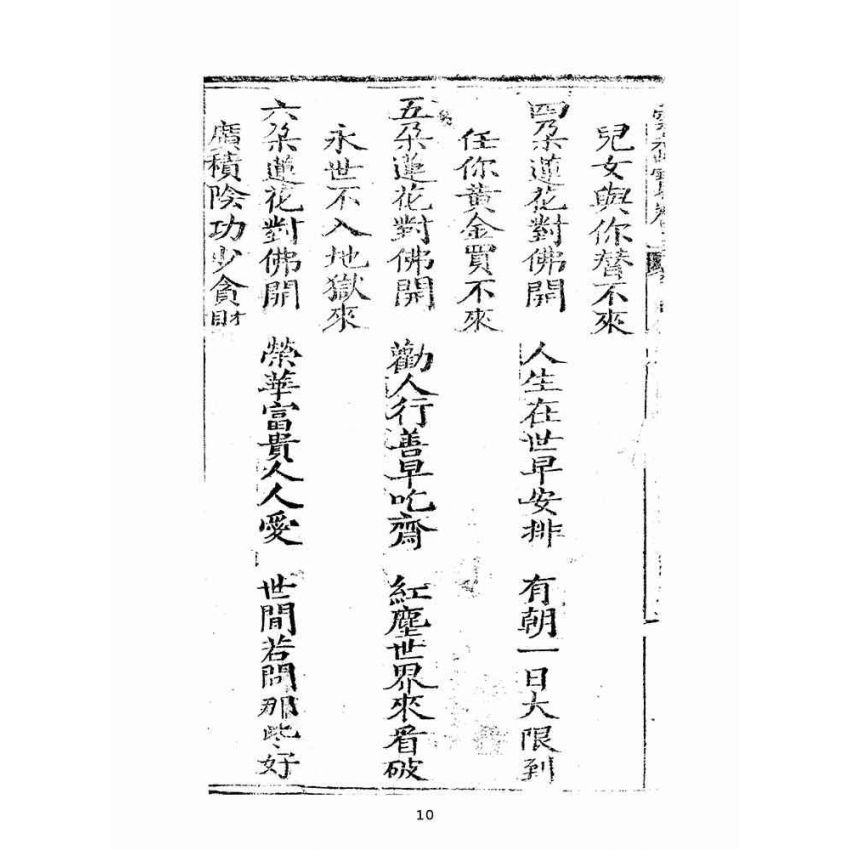 兒女與你替不來
四朶蓮花對佛開　人生在世早安排　有朝一日大限到
任你黃金買不來
五朶蓮花對佛開　勸人行善早吃齋　紅塵世界來看破
永世不入地獄來
六朶蓮花對佛開　榮華富貴人人愛　世間若問那些好
廣積陰功少貪財
10